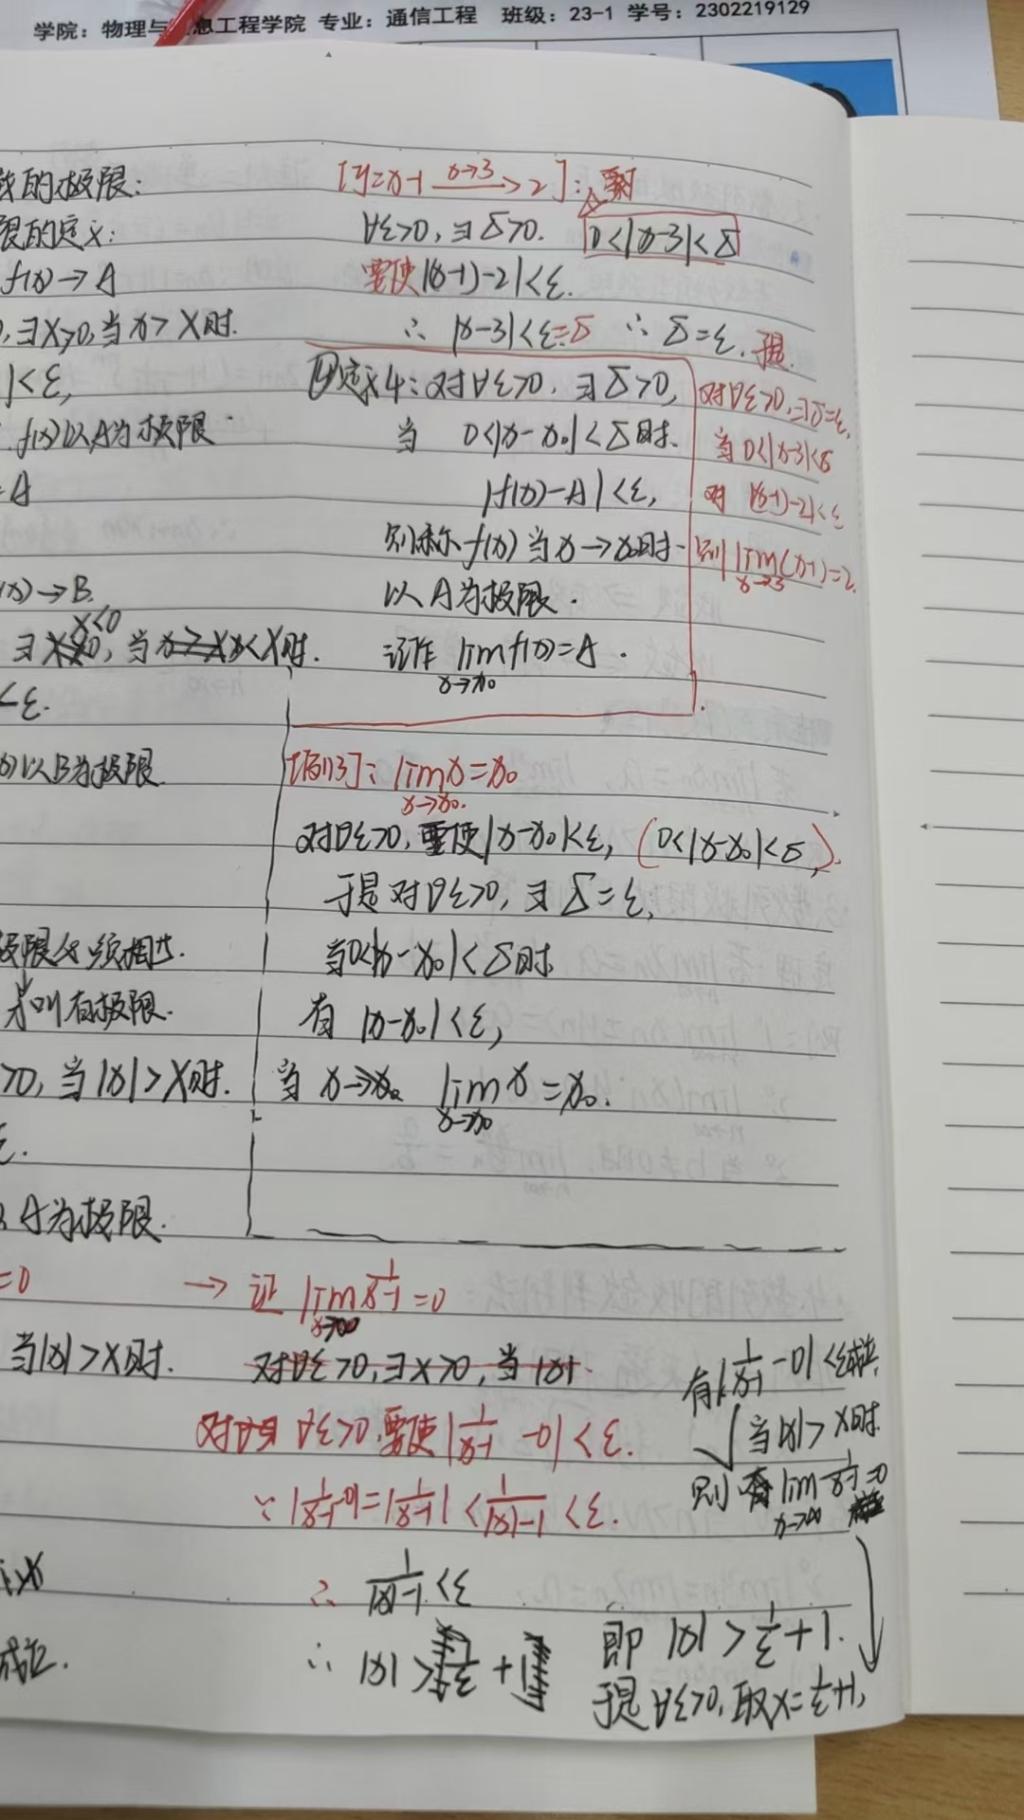 学院：物理与息工程学院 专业：通信工程 班级：23-1 学号：2302219129
的极限：
限的定义：
f(x)→A
,∃X>0,当x>X时.
|<ε,
f(x)以A为极限
=A
(x)→B.
x<0
∃ 当 x<X时.
<ε.
以B为极限.
极限必须相等.
才叫有极限.
>0,当|x|>X时.
ε.
A为极限.
=0
当|x|>X时.
成立.
[y=x-1 x→3 → 2]：
∀ε>0,∃δ>0. 0<|x-3|<δ
要使|(x-1)-2|<ε.
∴ |x-3|<ε=δ ∴ δ=ε.
④定义4：对∀ε>0,∃δ>0,
当 0<|x-x₀|<δ时.
|f(x)-A|<ε,
则称f(x)当x→x₀时
以A为极限.
记作 lim f(x)=A.
x→x₀
对∀ε>0,∃δ=ε,
当0<|x-3|<δ
|(x-1)-2|<ε
则 lim(x-1)=2.
x→3
[例3]：lim x=x₀
x→x₀.
对∀ε>0,要使|x-x₀|<ε,(0<|x-x₀|<δ).
于是对∀ε>0,∃δ=ε,
当0<|x-x₀|<δ时
有 |x-x₀|<ε,
当 x→x₀ lim x=x₀.
x→x₀
→ 证 lim 1/(x-1)=0
x→∞
对∀ε>0,∃X>0,当|x|
∀ε>0,要使|1/(x-1)-0|<ε.
∵ |1/(x-1)-0|=|1/(x-1)|<1/(|x|-1)<ε.
∴ 1/(|x|-1)<ε
∴ |x|>1/ε+1
即 |x|>1/ε+1.
于是∀ε>0,取X=1/ε+1,
有|1/(x-1)-0|<ε成立
当|x|>X时.
则 lim 1/(x-1)=0
x→∞